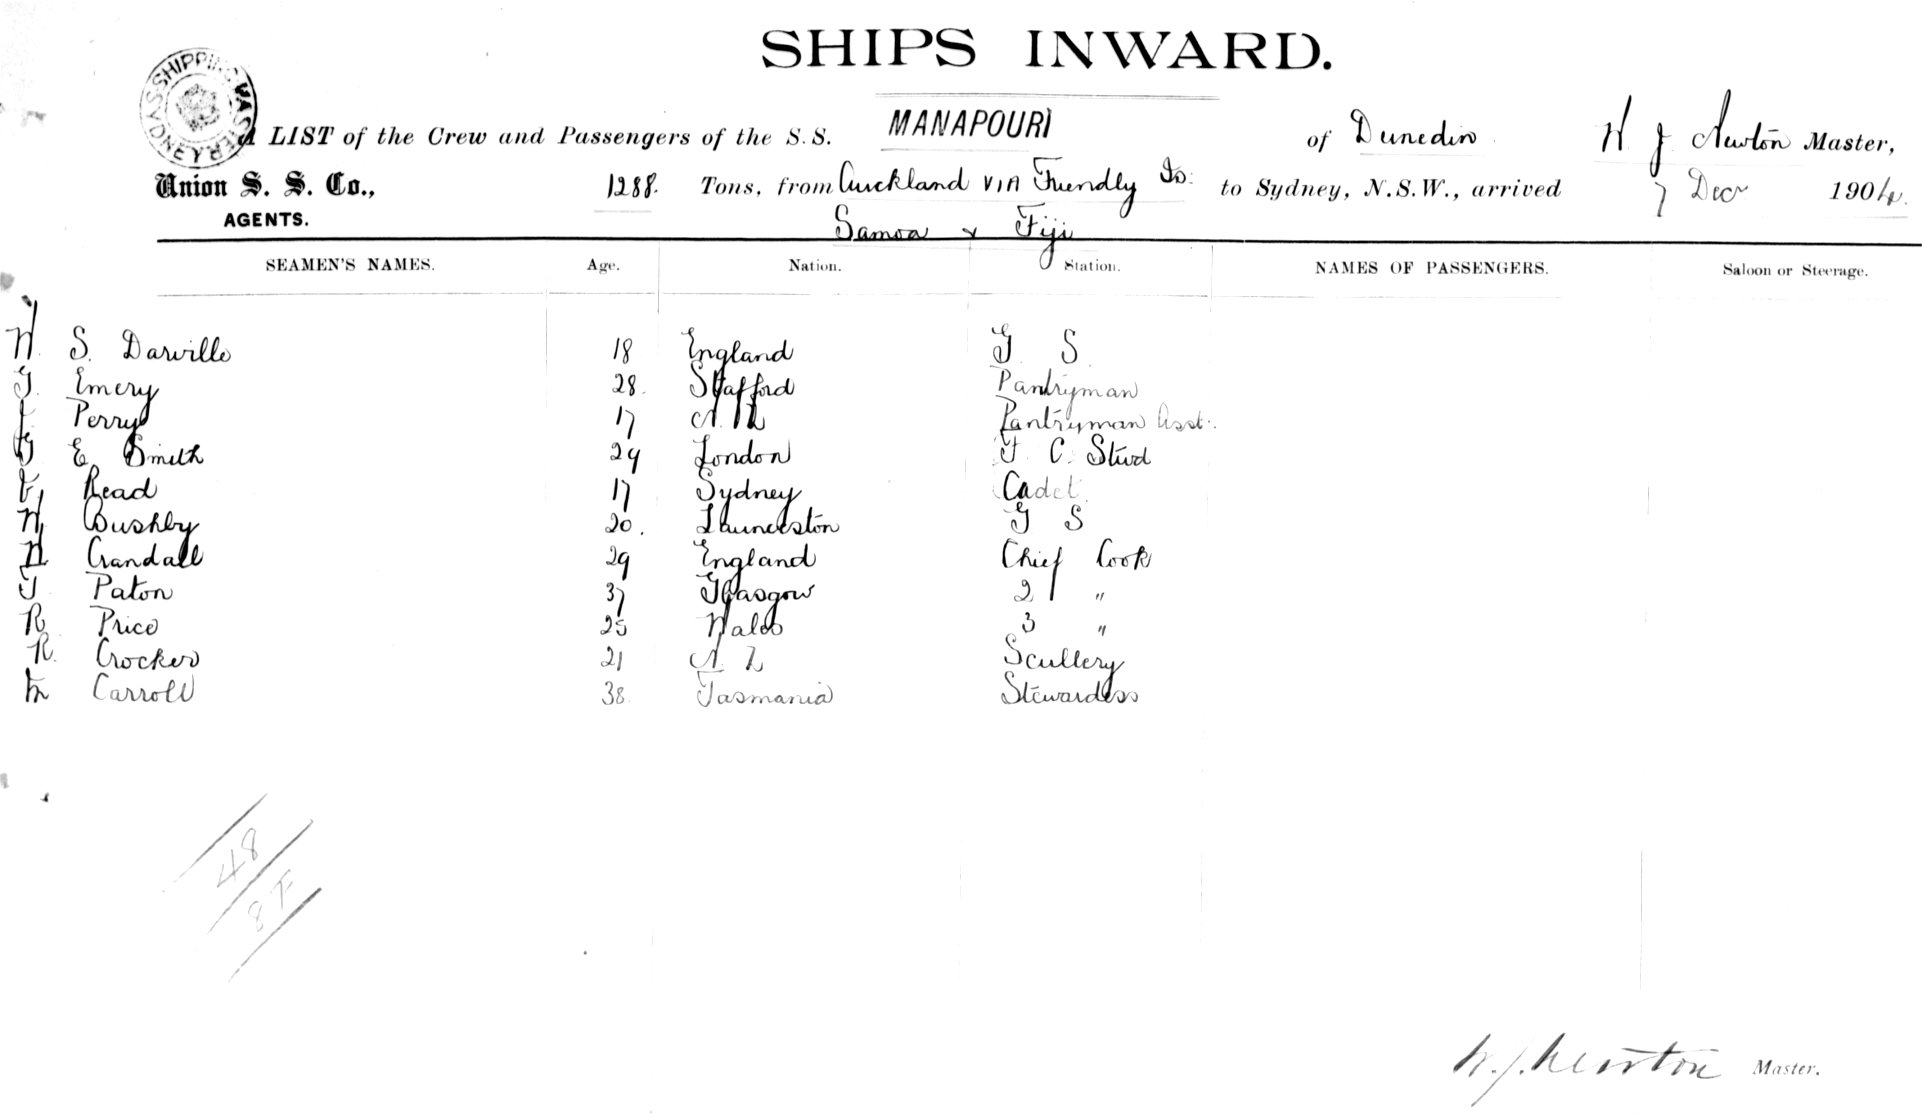 SHIPS INWARD.
SHIPPING MASTER SYDNEY
A LIST of the Crew and Passengers of the S.S. MANAPOURI of Dunedin W J Newton Master,
Union S. S. Co., 1288 Tons, from Auckland VIA Friendly Is: to Sydney, N.S.W., arrived 7 Decr 1904.
AGENTS. Samoa & Fiji
SEAMEN'S NAMES. Age. Nation. Station. NAMES OF PASSENGERS. Saloon or Steerage.
W. S. Darville 18 England G S
G. Emery 28. Stafford Pantryman
J. Perry 17 N. Z Pantryman Asst.
G E Smith 29 London F. C. Stwd
Read 17 Sydney Cadet
W Bushby 20. Launceston G S
H Crandall 29 England Chief Cook
T Paton 37 Glasgow 2 "
R Price 25 Wales 3 "
R. Crocker 21 N. Z Scullery
Carroll 38. Tasmania Stewardess
48
8F
W. J. Newton Master.